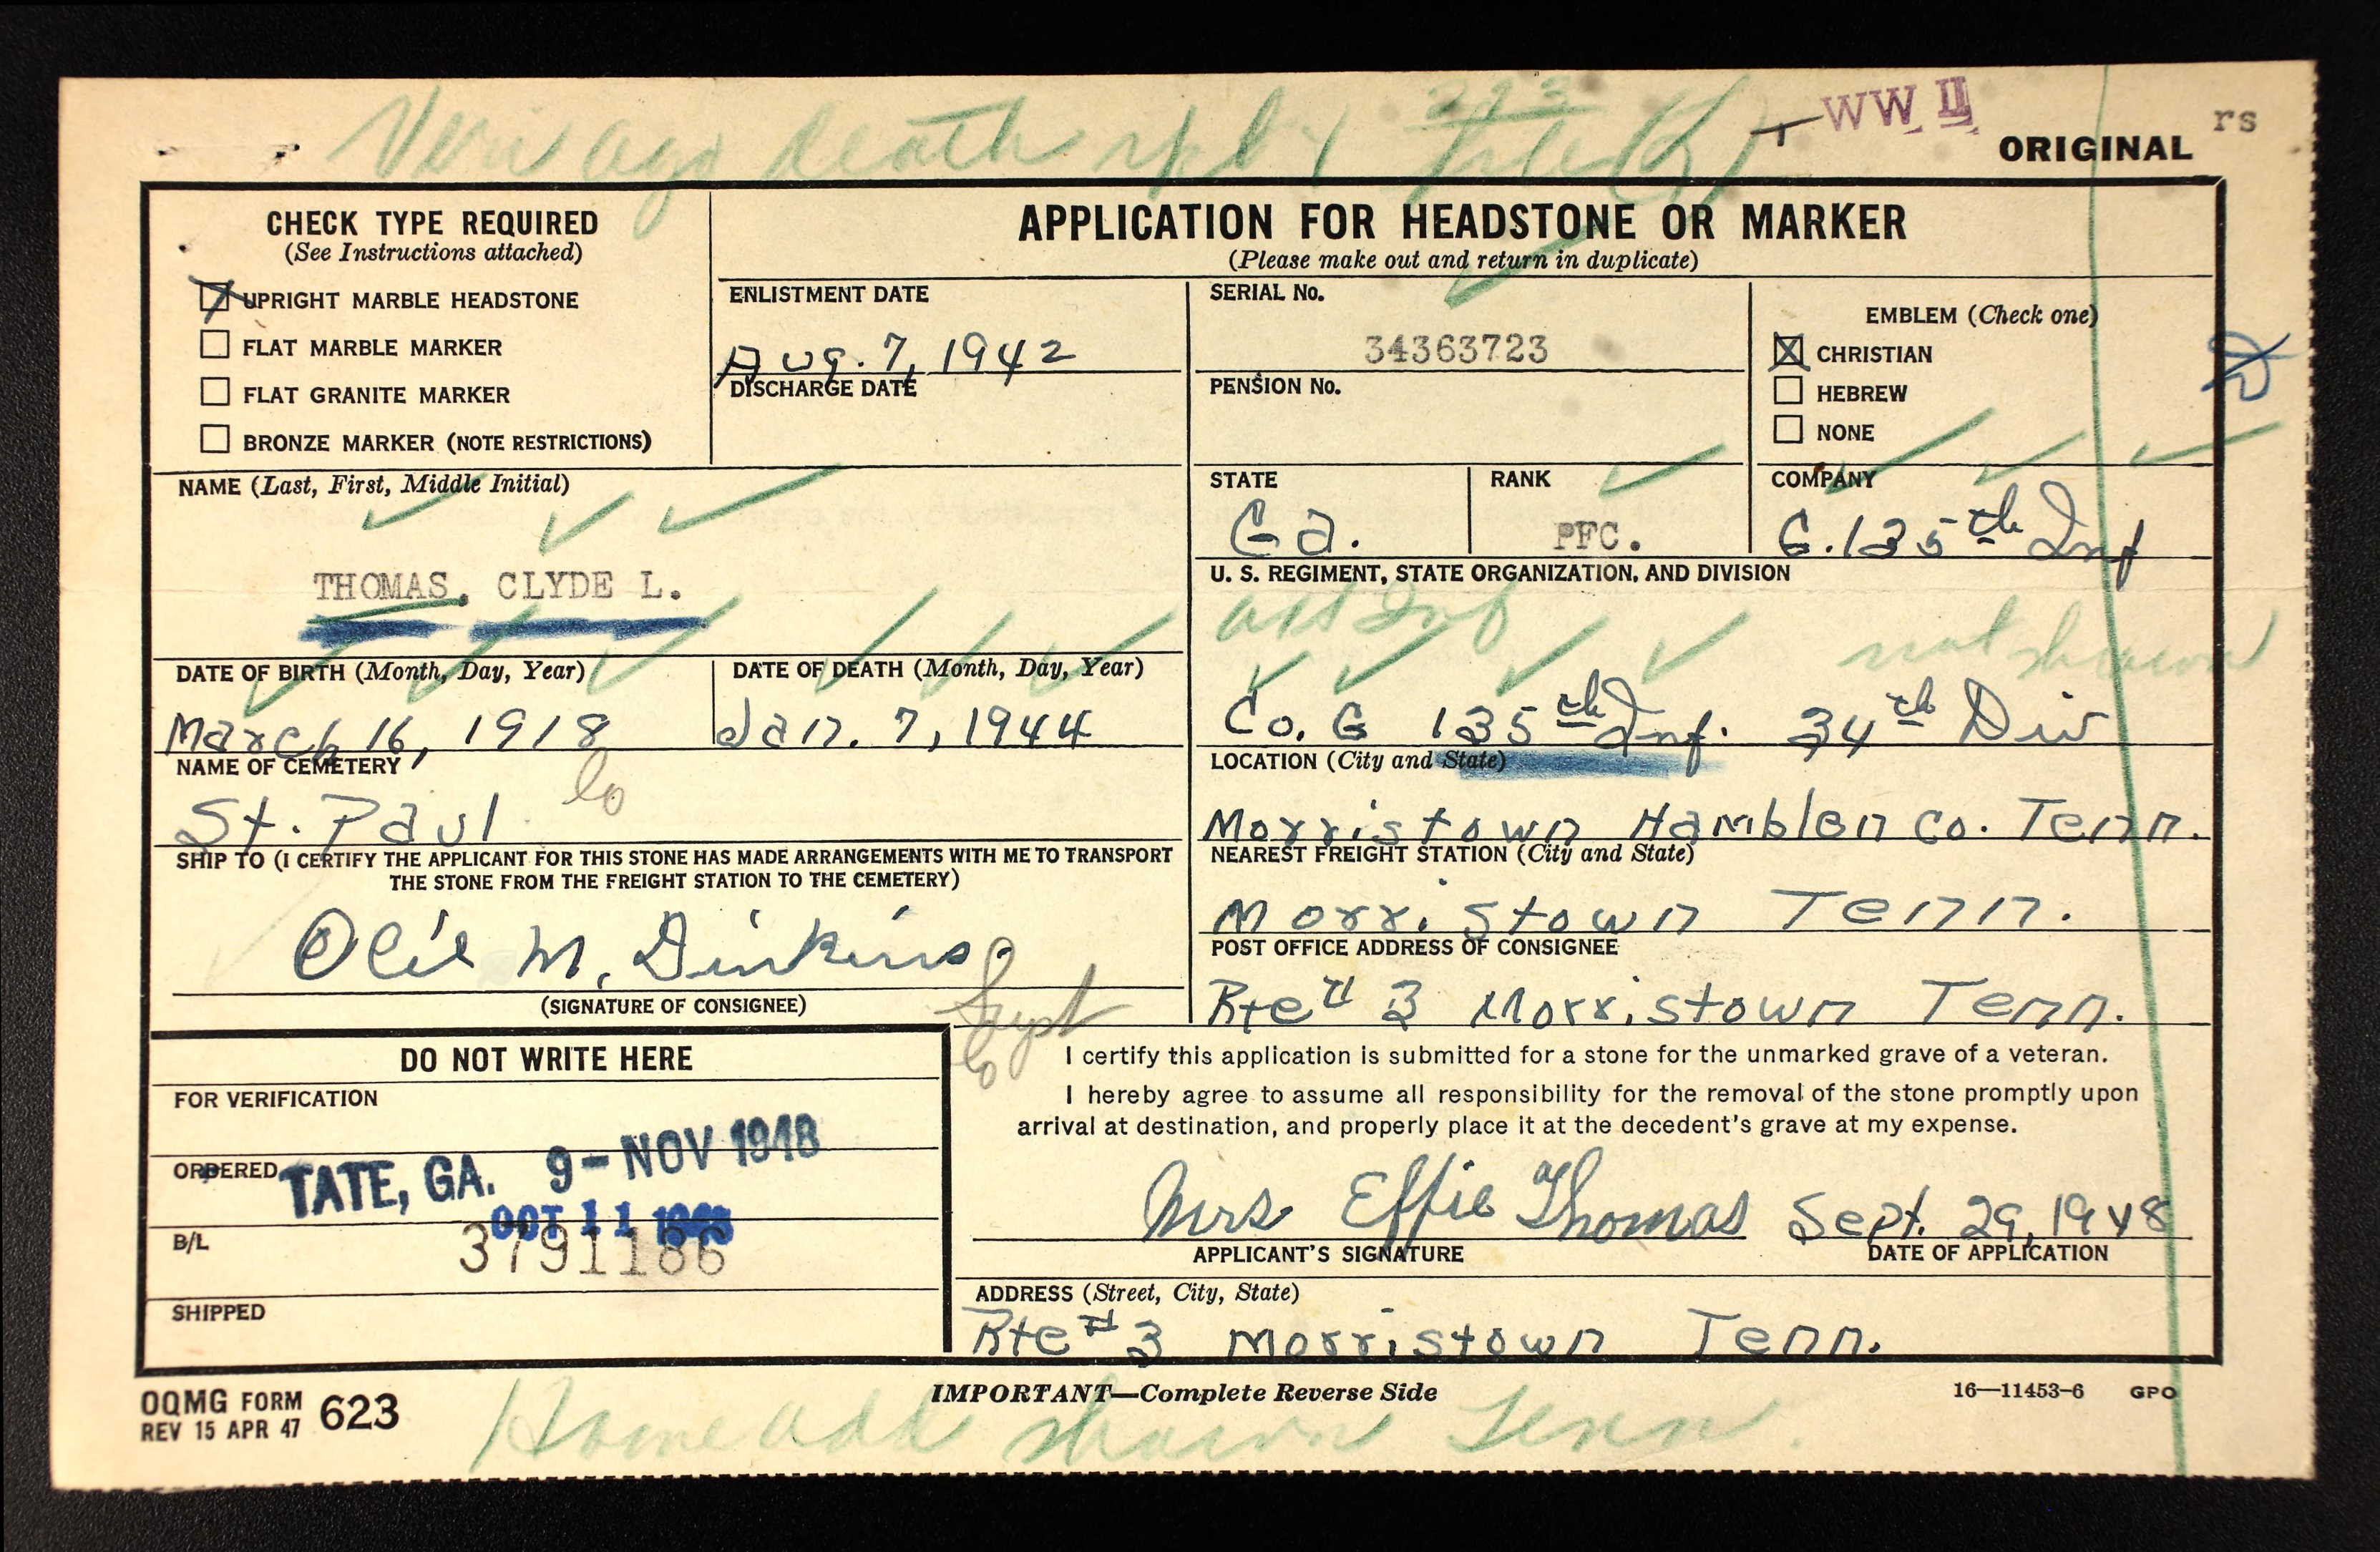 WW II
rs
ORIGINAL
CHECK TYPE REQUIRED
(See Instructions attached)
UPRIGHT MARBLE HEADSTONE
FLAT MARBLE MARKER
FLAT GRANITE MARKER
BRONZE MARKER (NOTE RESTRICTIONS)
APPLICATION FOR HEADSTONE OR MARKER
(Please make out and return in duplicate)
ENLISTMENT DATE
Aug. 7, 1942
DISCHARGE DATE
SERIAL No.
34363723
PENSION No.
EMBLEM (Check one)
CHRISTIAN
HEBREW
NONE
NAME (Last, First, Middle Initial)
THOMAS, CLYDE L.
STATE
Ga.
RANK
PFC.
COMPANY
G. 135th Inf
U. S. REGIMENT, STATE ORGANIZATION, AND DIVISION
Inf not shown
Co. G 135th Inf. 34th Div
DATE OF BIRTH (Month, Day, Year)
March 16, 1918
DATE OF DEATH (Month, Day, Year)
Jan. 7, 1944
NAME OF CEMETERY
St. Paul
LOCATION (City and State)
Morristown Hamblen Co. Tenn.
SHIP TO (I CERTIFY THE APPLICANT FOR THIS STONE HAS MADE ARRANGEMENTS WITH ME TO TRANSPORT
THE STONE FROM THE FREIGHT STATION TO THE CEMETERY)
M. Dinkins
(SIGNATURE OF CONSIGNEE)
NEAREST FREIGHT STATION (City and State)
Morristown Tenn.
POST OFFICE ADDRESS OF CONSIGNEE
Rte # 3 Morristown Tenn.
DO NOT WRITE HERE
FOR VERIFICATION
ORDERED
TATE, GA. 9-NOV 1948
OCT 11
B/L
3791186
SHIPPED
I certify this application is submitted for a stone for the unmarked grave of a veteran.
I hereby agree to assume all responsibility for the removal of the stone promptly upon
arrival at destination, and properly place it at the decedent's grave at my expense.
Mrs Effie Thomas Sept. 29, 1948
APPLICANT'S SIGNATURE
DATE OF APPLICATION
ADDRESS (Street, City, State)
Rte # 3 Morristown Tenn.
OQMG FORM 623
REV 15 APR 47
IMPORTANT—Complete Reverse Side
16—11453-6 GPO
Home add shown Tenn.